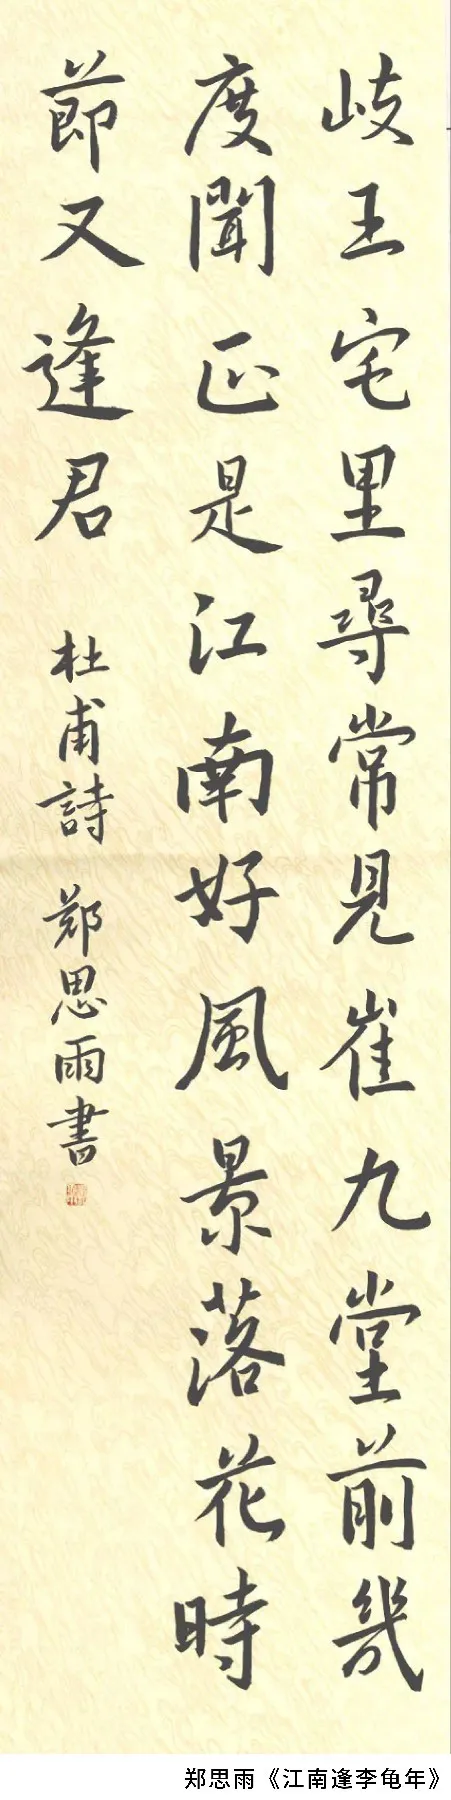 歧王宅里尋常見崔九堂前幾
度聞正是江南好風景落花時
節又逢君
杜甫詩 郑思雨書
郑思雨《江南逢李龟年》